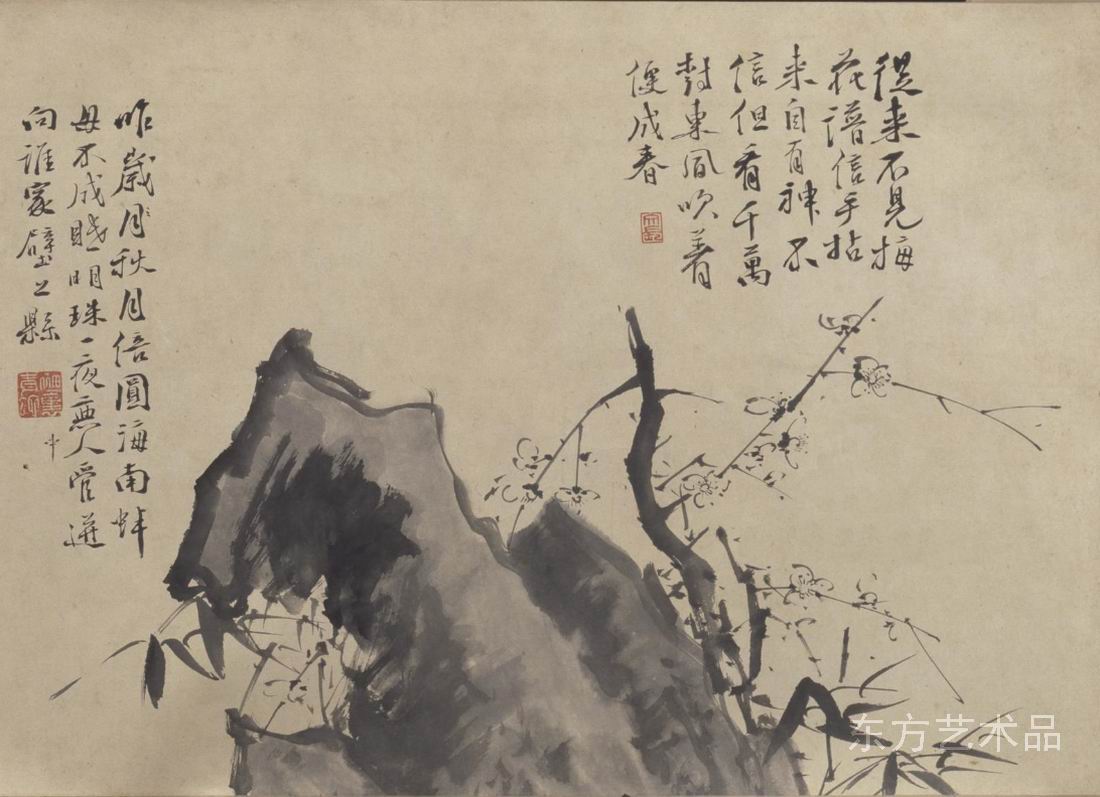 從来不見梅
花譜信手拈
来自有神不
信但看千萬
樹東風吹着
便成春
昨歲月秋月倍圓海南蚌
母不成眠明珠一夜無人管迸
向誰家壁上縣
中
东方艺术品